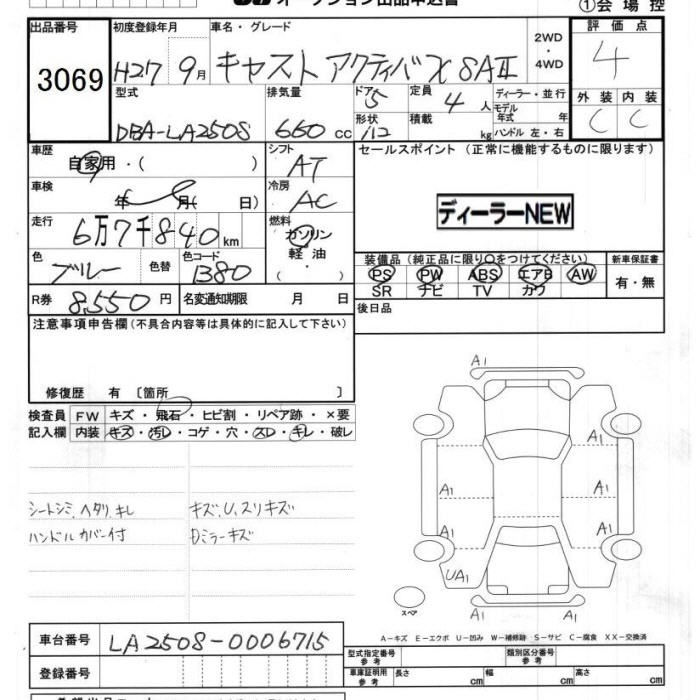 オークション出品申込書
①会場控
出品番号
3069
初度登録年月
H27 9月
車名・グレード
キャスト アクティバX SAⅡ
2WD
・
4WD
評価点
4
型式
DBA-LA250S
排気量
660 cc
ドア 5
形状 /12
定員 4 人
積載 kg
ディーラー・並行
モデル年式 年
ハンドル 左・右
外装 内装
C C
車歴
自家用・( )
シフト
AT
セールスポイント (正常に機能するものに限ります)
車検
年 月( 日)
冷房
AC
ディーラーNEW
走行
6万7千840km
燃料
ガソリン
軽油
( )
色
ブルー
色替
色コード
B80
装備品(純正品に限り○をつけてください)
新車保証書
PS PW ABS エアB AW
SR ナビ TV カワ
有・無
R券 8,550円
名変通知期限 月 日
後日品
注意事項申告欄(不具合内容等は具体的に記入して下さい)
修復歴 有 〔箇所 〕
検査員
記入欄
FW キズ・飛石・ヒビ割・リペア跡・×要
内装 キズ・汚レ・コゲ・穴・スレ・キレ・破レ
シートシミ、ヘタリ、キレ
ハンドルカバー付
キズ、U、スリキズ
Dミラーキズ
A1
A1
A1
A1
A1
A1
A1
UA1
A1
スペア
A-キズ E-エクボ U-凹み W-補修跡 S-サビ C-腐食 XX-交換済
車台番号 LA250S-0006715
登録番号
型式指定番号
参考
類別区分番号
参考
車庫証明用
参考
長さ cm
幅 cm
高さ cm